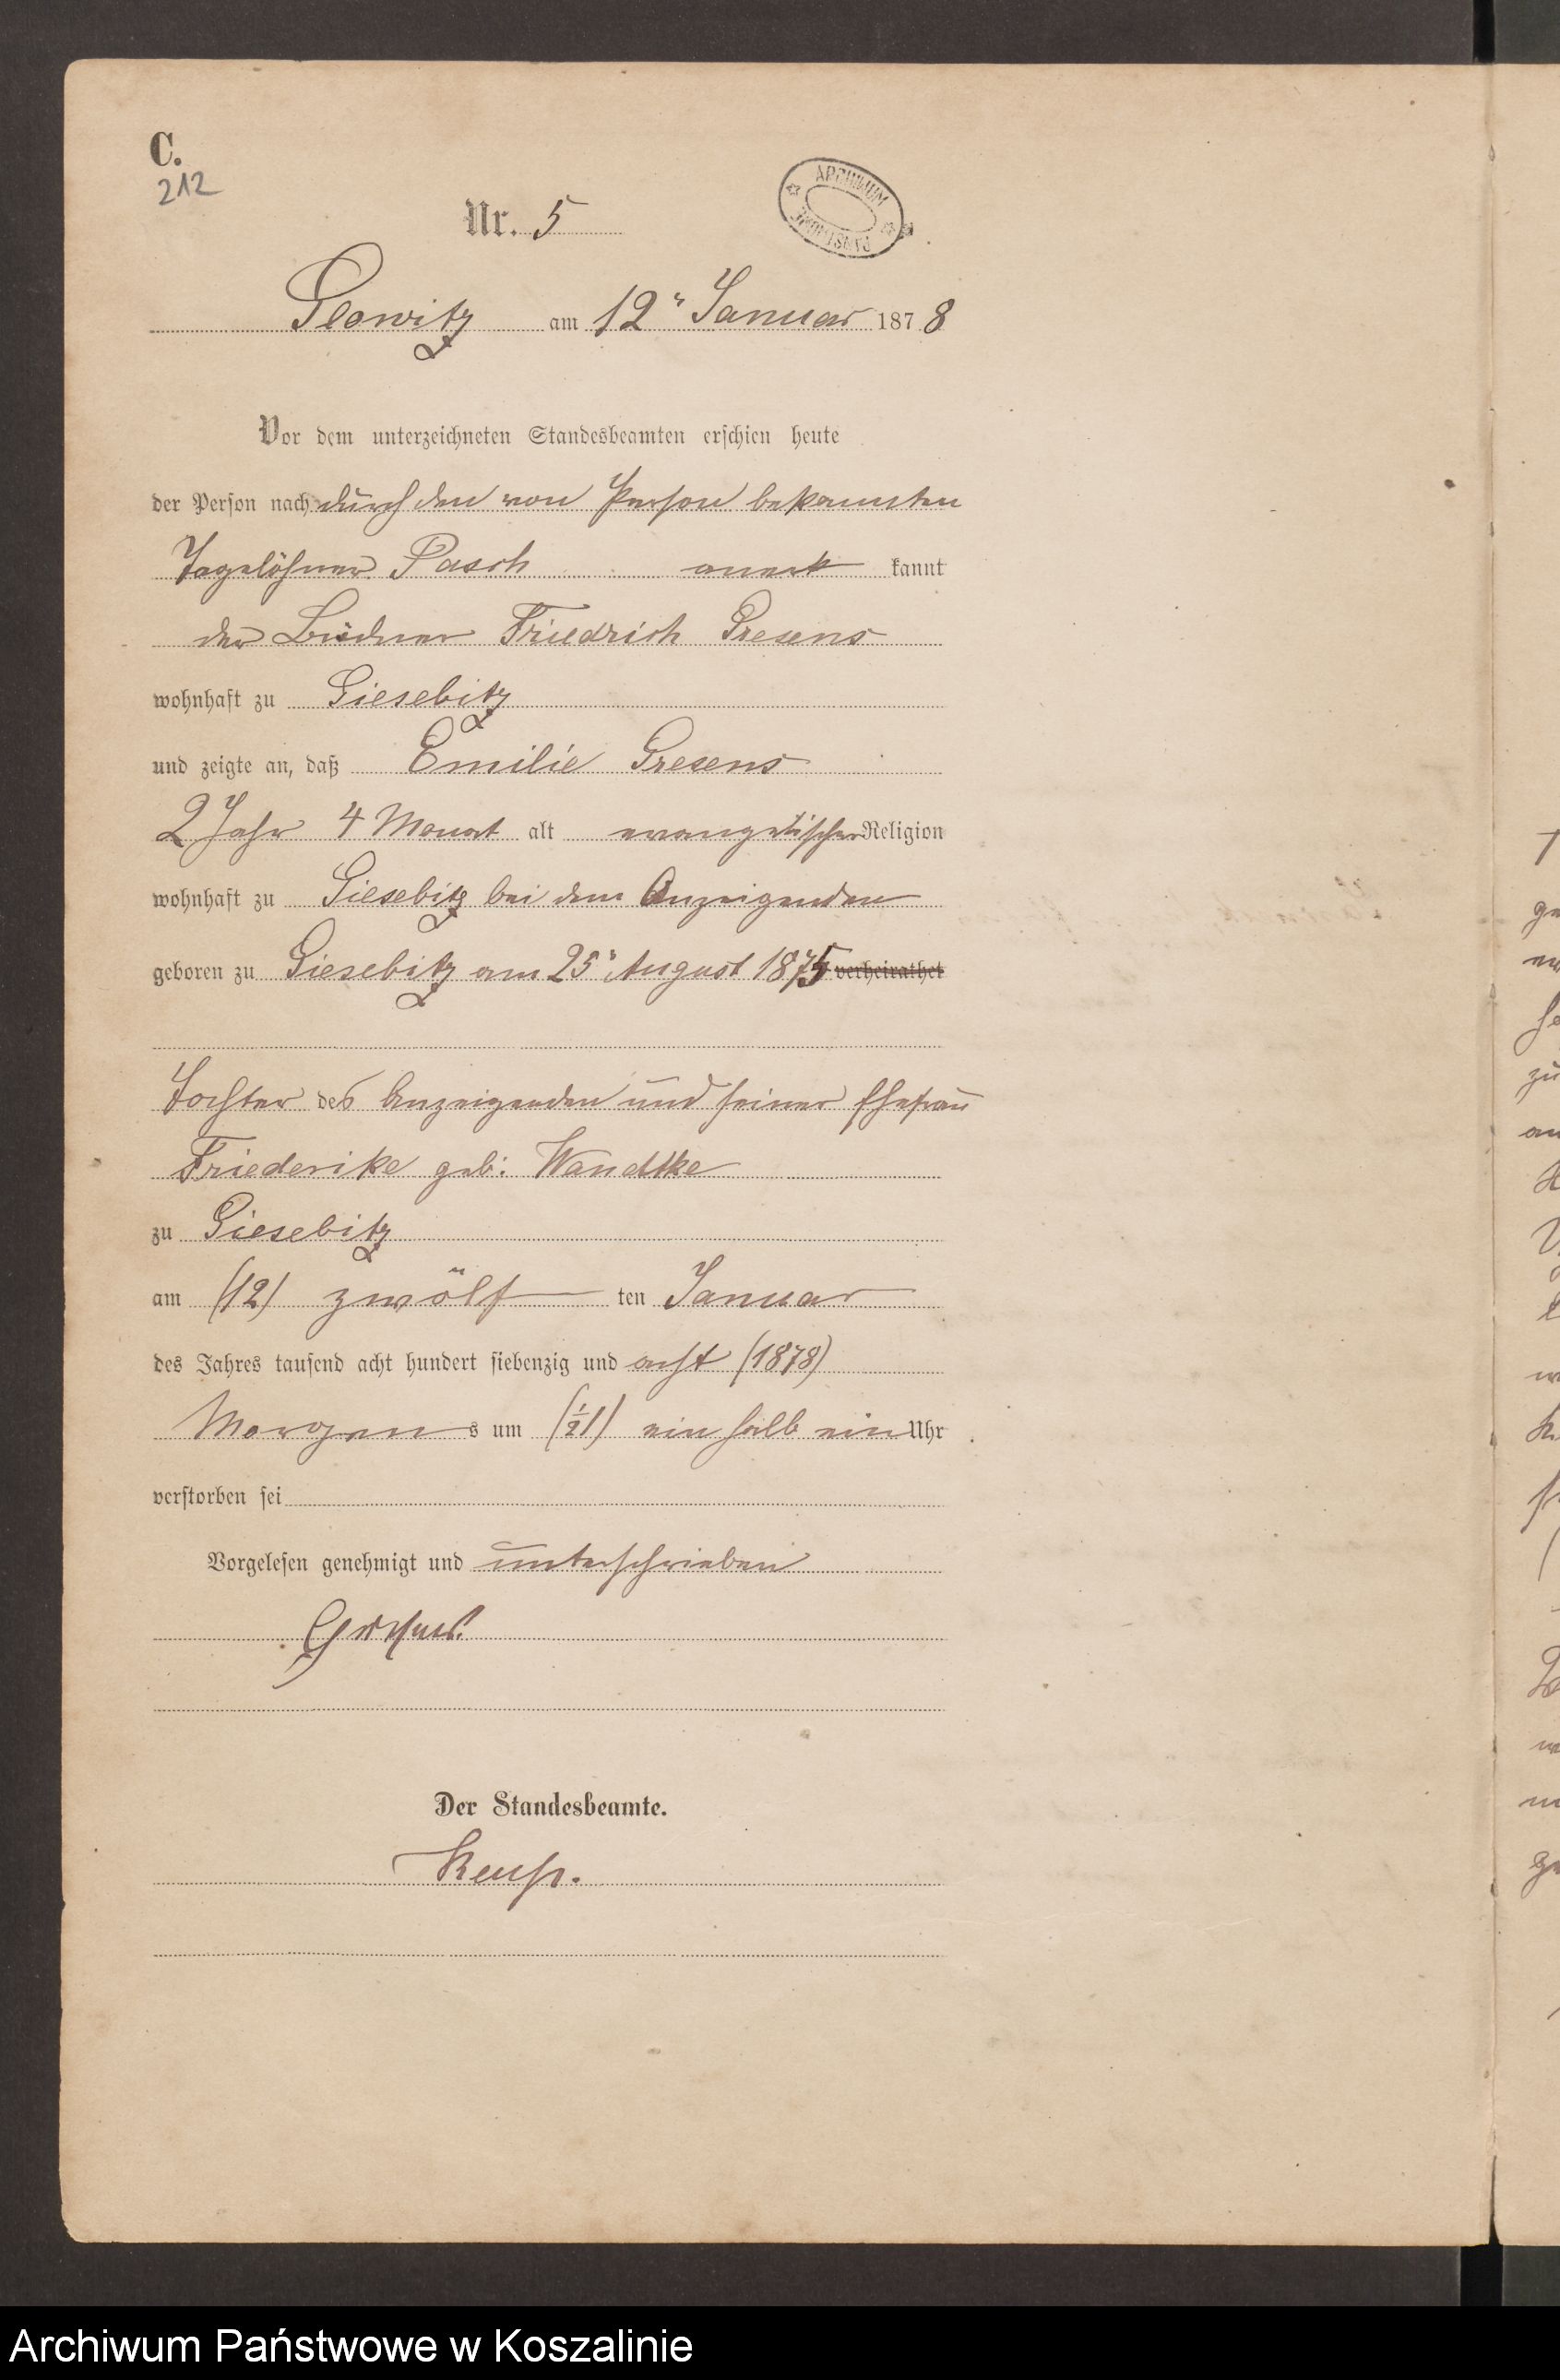 C.
212
Nr. 5
ARCHIWUM PAŃSTWOWE
Glowitz am 12ᵗ Januar 1878
Vor dem unterzeichneten Standesbeamten erschien heute
der Person nach durch den von Person bekannten
Tagelöhner Pasch anerkannt
der Büdner Friedrich Gresens
wohnhaft zu Giesebitz
und zeigte an, daß Emilie Gresens
2 Jahr 4 Monat alt evangelischer Religion
wohnhaft zu Giesebitz bei dem Anzeigenden
geboren zu Giesebitz am 25ᵗ August 1875 verheirathet
Tochter des Anzeigenden und seiner Ehefrau
Friederike geb: Wandtke
zu Giesebitz
am (12) zwölf ten Januar
des Jahres tausend acht hundert siebenzig und acht (1878)
Morgens um (½1) ein halb ein Uhr
verstorben sei
Vorgelesen genehmigt und unterschrieben
Der Standesbeamte.
Archiwum Państwowe w Koszalinie